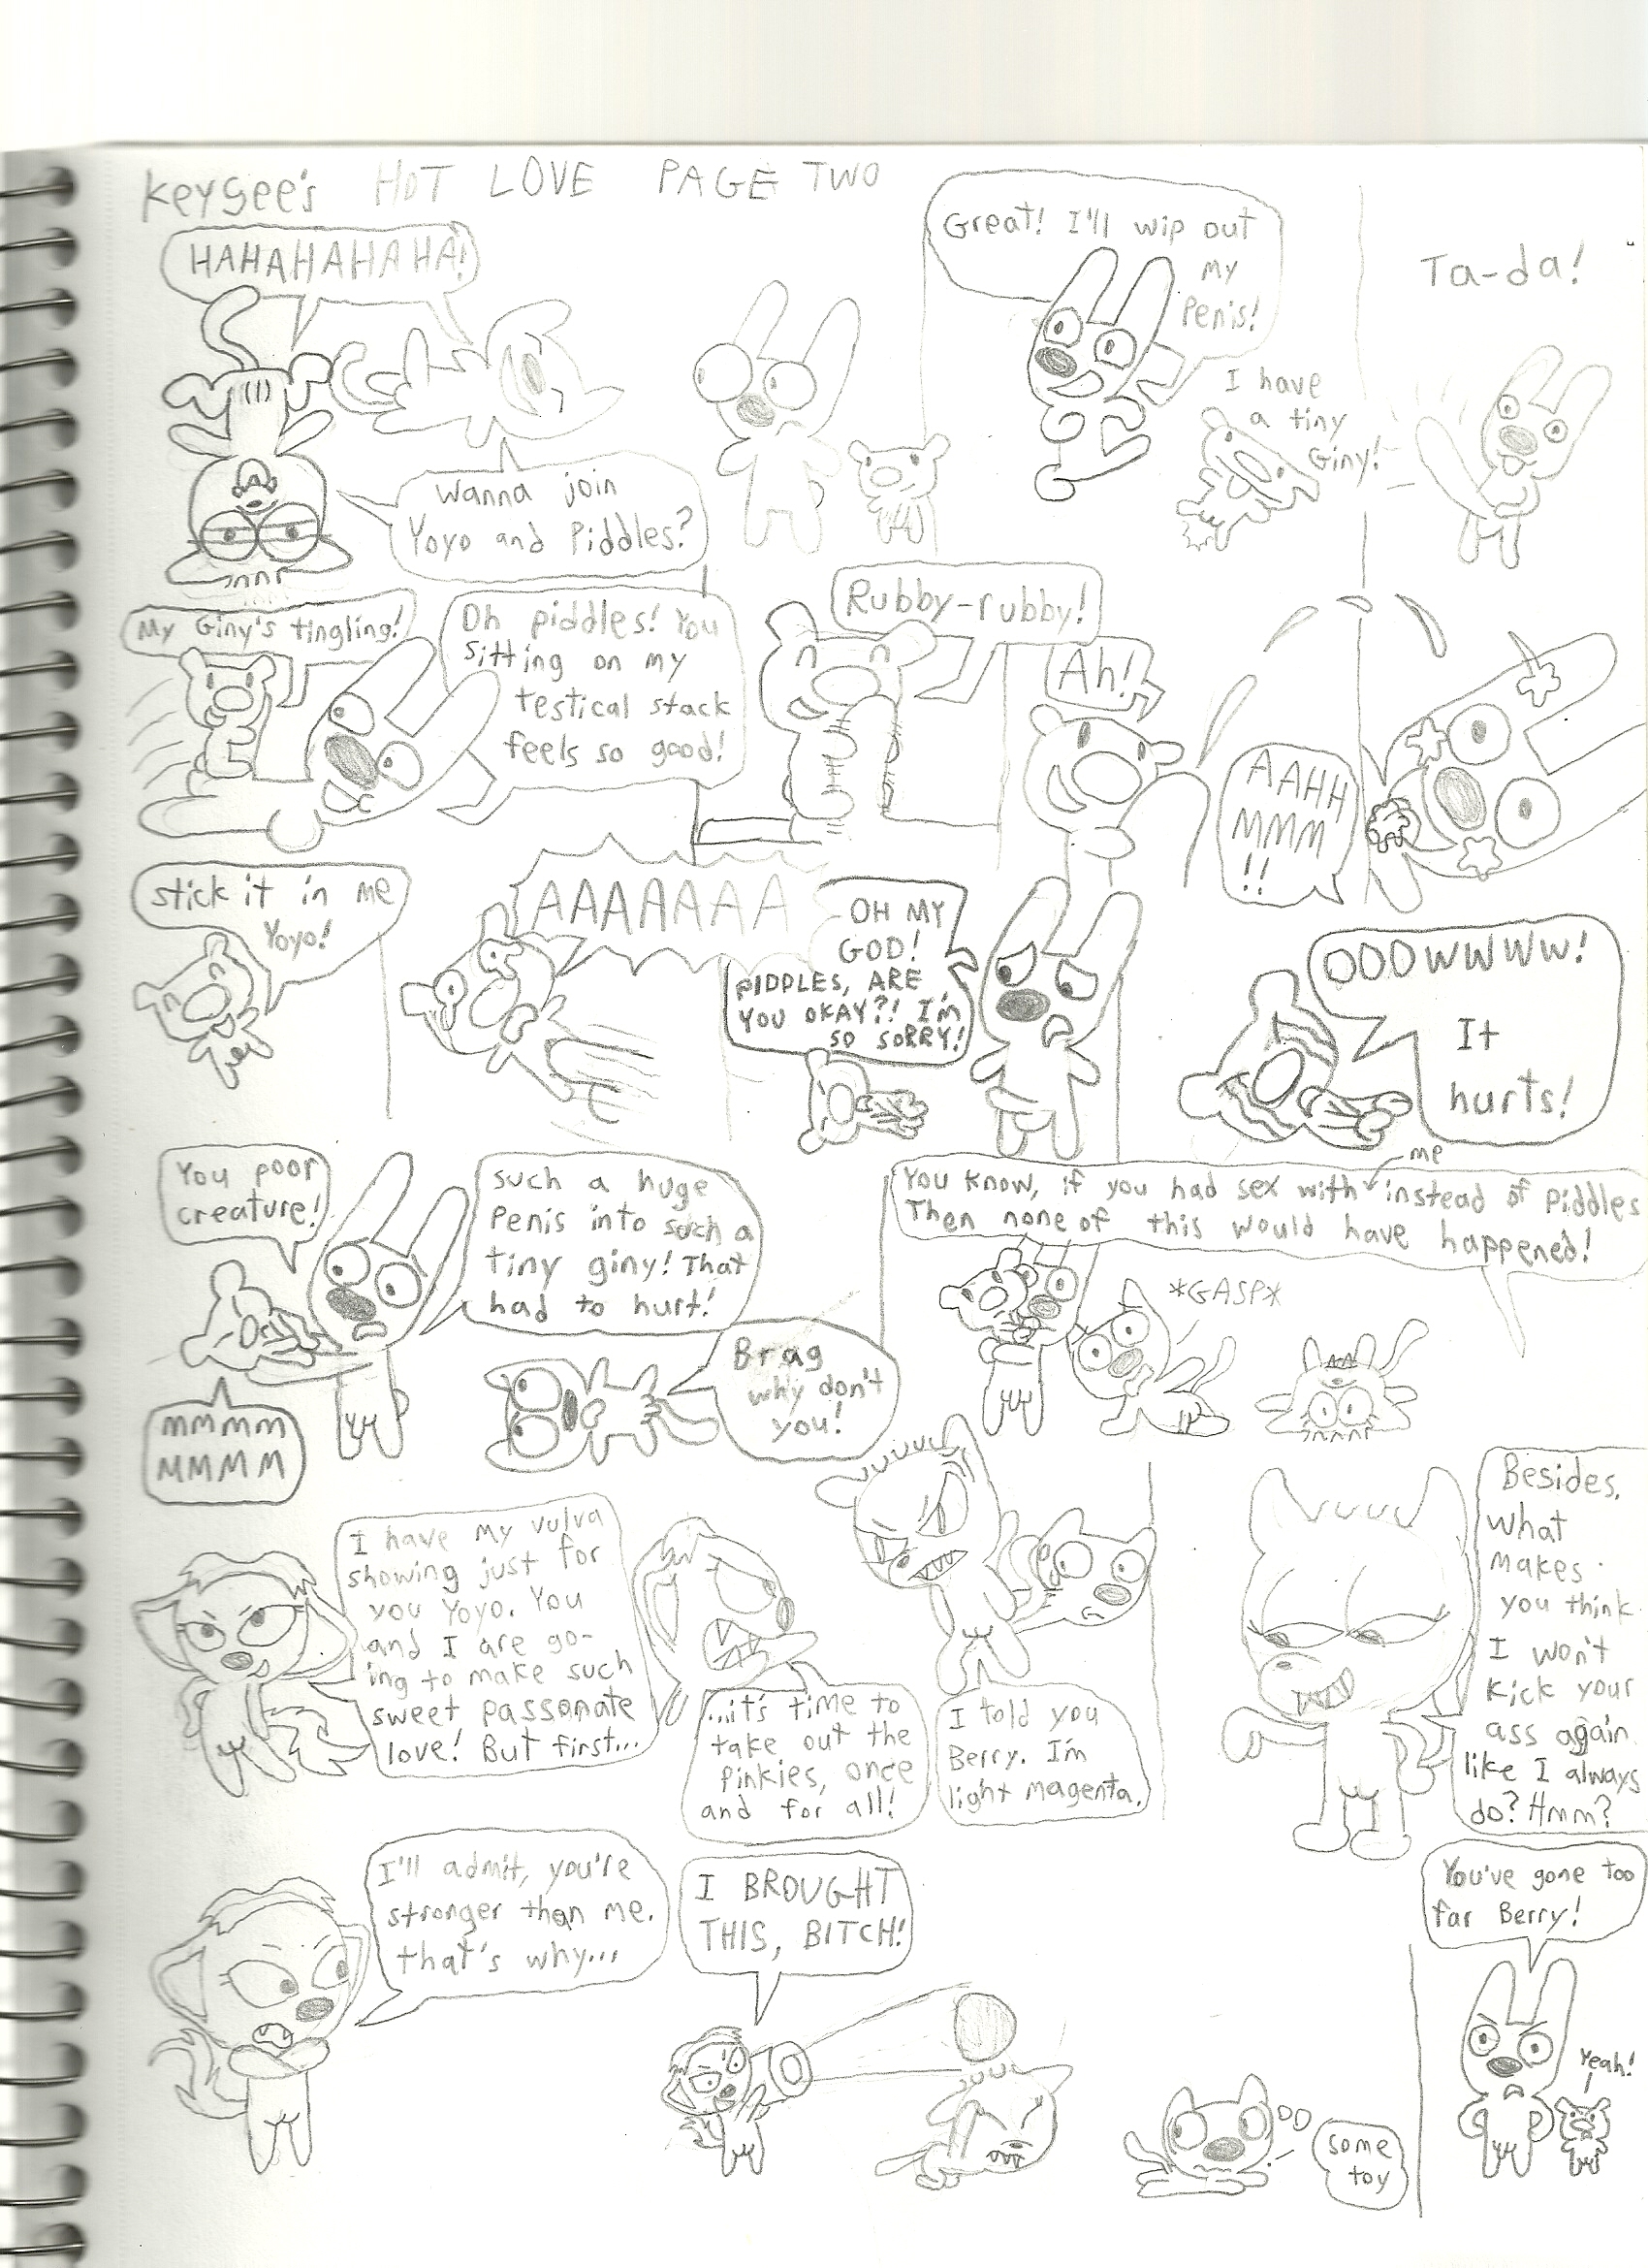 Keygee's HOT LOVE PAGE TWO
HAHAHAHAHA!
Wanna join
Yoyo and Piddles?
Great! I'll wip out
my
Penis!
I have
a tiny
Giny!
Ta-da!
My Giny's tingling!
Oh piddles! You
sitting on my
testical stack
feels so good!
Rubby-rubby!
Ah!
AAHH
MMM
!!
stick it in me
Yoyo!
AAAAAAA
OH MY
GOD!
PIDDLES, ARE
YOU OKAY?! I'm
SO SORRY!
OOOWWWW!
It
hurts!
You poor
creature!
such a huge
Penis into such a
tiny giny! That
had to hurt!
MMMM
MMMM
Brag
why don't
you!
me
You know, if you had sex with instead of Piddles
Then none of this would have happened!
*GASP*
I have my vulva
showing just for
you Yoyo. You
and I are go-
ing to make such
sweet passonate
love! But first...
...it's time to
take out the
pinkies, once
and for all!
I told you
Berry. I'm
light magenta.
Besides,
what
makes
you think
I won't
kick your
ass again
like I always
do? Hmm?
I'll admit, you're
stronger than me.
that's why...
I BROUGHT
THIS, BITCH!
some
toy
You've gone too
far Berry!
Yeah!